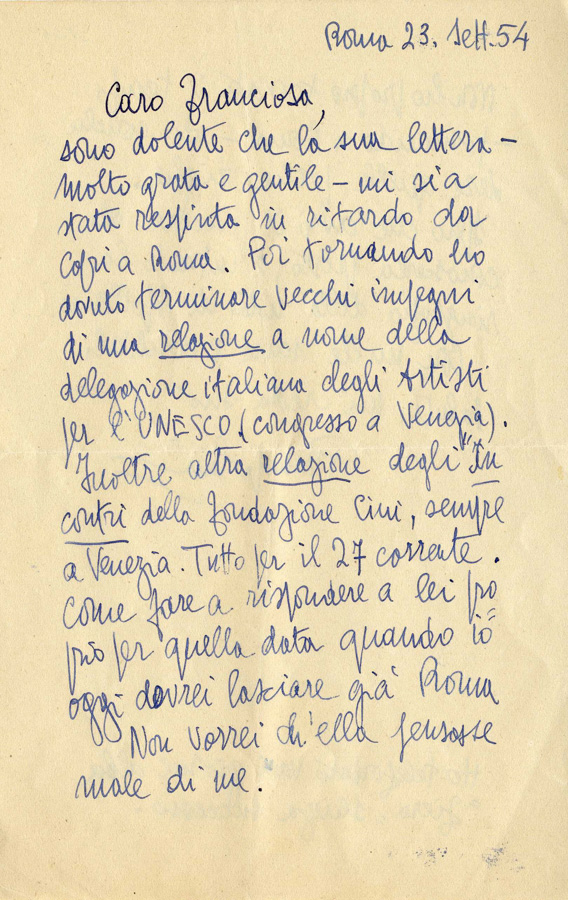 Roma 23. Sett. 54
Caro Franciosa,
sono dolente che la sua lettera -
molto grata e gentile - mi sia
stata respinta in ritardo da
Capri a Roma. Poi tornando ho
dovuto terminare vecchi impegni
di una relazione a nome della
delegazione italiana degli Artisti
per l'UNESCO (congresso a Venezia).
Inoltre altra relazione degli "In
contri della Fondazione Cini, sempre
a Venezia. Tutto per il 27 corrente.
Come fare a rispondere a lei pro
prio per quella data quando io
oggi dovrei lasciare già Roma
Non vorrei ch'ella pensasse
male di me.